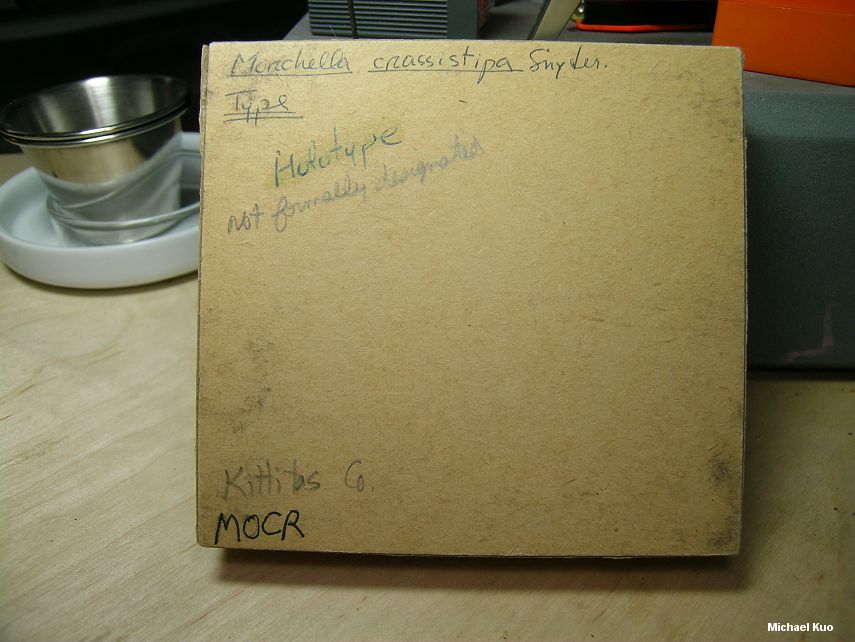 Morchella crassistipa Snyder.
Type
Holotype
not formally designated
Kittitas Co.
MOCR
Michael Kuo